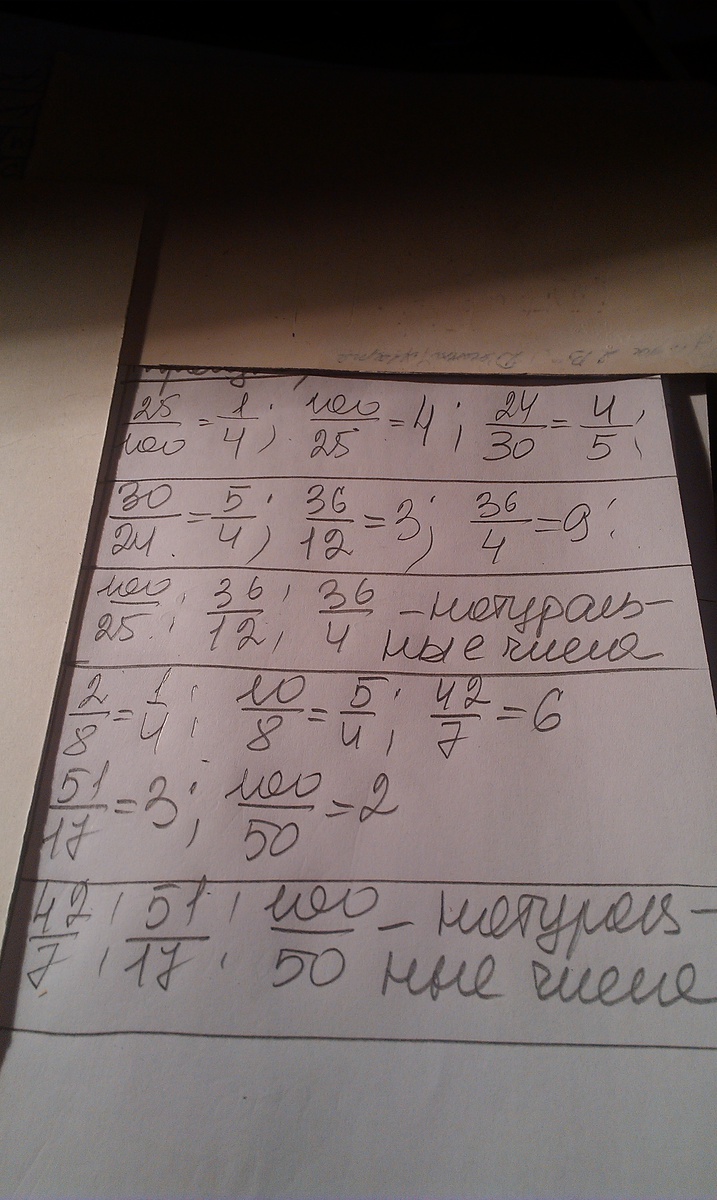 25/100 = 1/4; 100/25 = 4; 24/30 = 4/5;
30/24 = 5/4; 36/12 = 3; 36/4 = 9;
100/25; 36/12; 36/4 – натураль-
ные числа
2/8 = 1/4; 10/8 = 5/4; 42/7 = 6
51/17 = 3; 100/50 = 2
42/7; 51/17; 100/50 – натураль-
ные числа